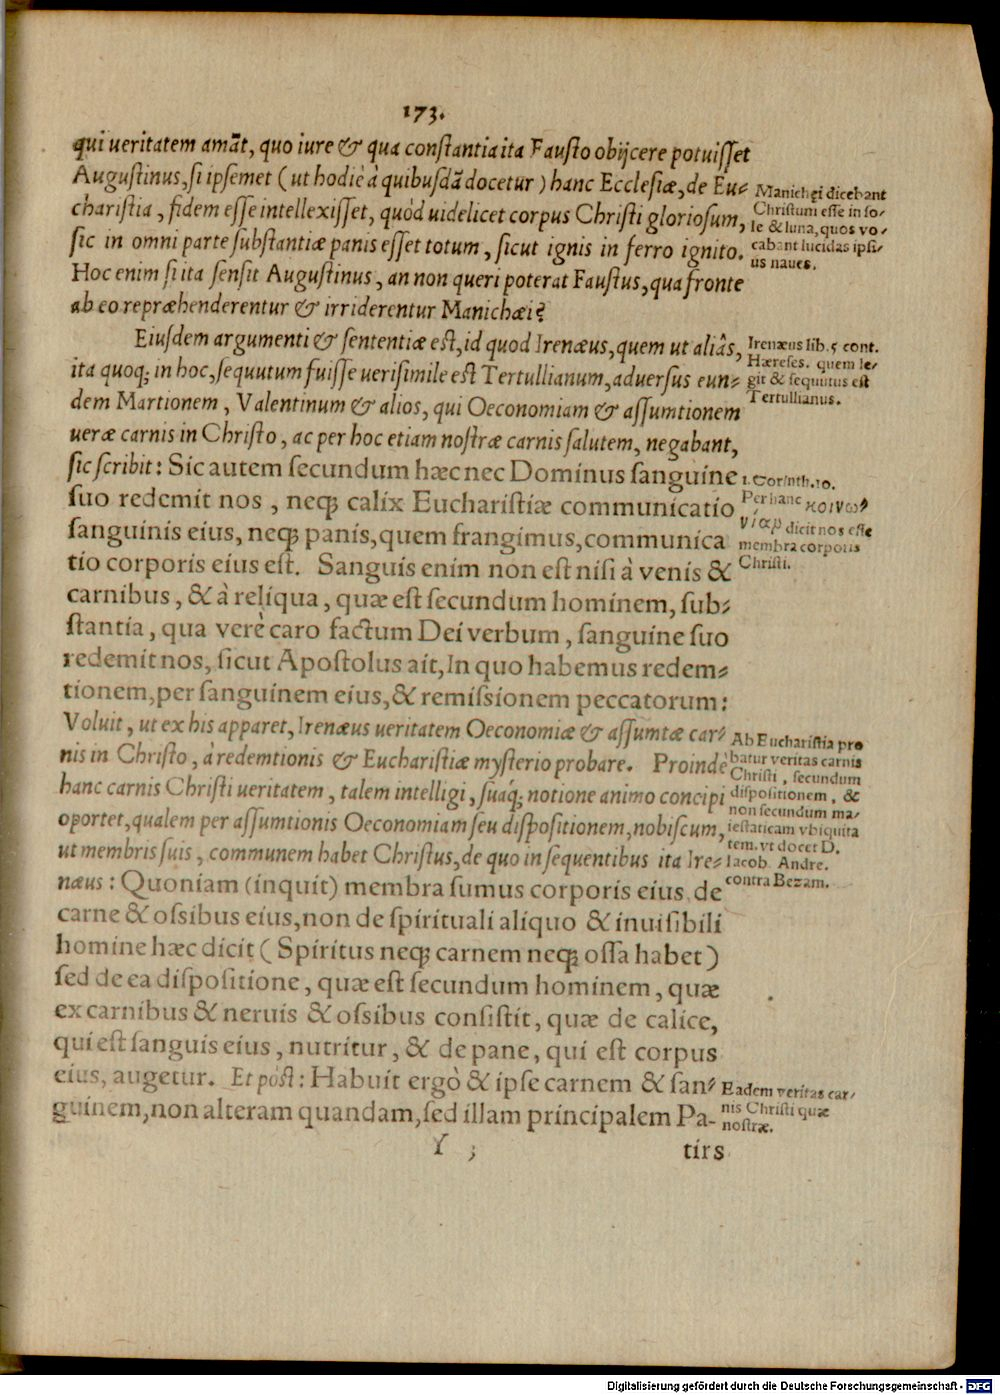 173.
qui ueritatem amãt, quo iure & qua constantia ita Fausto obijcere potuisset
Augustinus, si ipsemet ( ut hodiè à quibusdã docetur ) hanc Ecclesiæ, de Eu⸗
charistia, fidem esse intellexisset, quòd uidelicet corpus Christi gloriosum,
sic in omni parte substantiæ panis esset totum, sicut ignis in ferro ignito.
Hoc enim si ita sensit Augustinus, an non queri poterat Faustus, qua fronte
ab eo repræhenderentur & irriderentur Manichæi?
Manichęi dicebant
Christum esse in so⸗
le & luna, quos vo⸗
cabant lucidas ipsi⸗
us naues.
Eiusdem argumenti & sententiæ est, id quod Irenæus, quem ut aliâs,
ita quoq; in hoc, sequutum fuisse uerisimile est Tertullianum, aduersus eun⸗
dem Martionem, Valentinum & alios, qui Oeconomiam & assumtionem
ueræ carnis in Christo, ac per hoc etiam nostræ carnis salutem, negabant,
sic scribit: Sic autem secundum hæc nec Dominus sanguine
suo redemit nos, neq; calix Eucharistiæ communicatio
sanguinis eius, neq; panis, quem frangimus, communica
tio corporis eius est. Sanguis enim non est nisi à venis &
carnibus, & à reliqua, quæ est secundum hominem, sub⸗
stantia, qua verè caro factum Dei verbum, sanguine suo
redemit nos, sicut Apostolus ait, In quo habemus redem⸗
tionem, per sanguinem eius, & remissionem peccatorum:
Irenæus lib. 5 cont.
Hæreses. quem le⸗
git & sequutus est
Tertullianus.
1. Corinth. 10.
Per hanc κοινω⸗
νίαν dicit nos esse
membra corporis
Christi.
Voluit, ut ex his apparet, Irenæus ueritatem Oeconomiæ & assumtæ car⸗
nis in Christo, à redemtionis & Eucharistiæ mysterio probare. Proindè
hanc carnis Christi ueritatem, talem intelligi, suáq; notione animo concipi
oportet, qualem per assumtionis Oeconomiam seu dispositionem, nobiscum,
ut membris suis, communem habet Christus, de quo in sequentibus ita Ire⸗
næus: Quoniam (inquit) membra sumus corporis eius, de
carne & ossibus eius, non de spirituali aliquo & inuisibili
homine hæc dicit ( Spiritus neq; carnem neq; ossa habet )
sed de ea dispositione, quæ est secundum hominem, quæ
ex carnibus & neruis & ossibus consistit, quæ de calice,
qui est sanguis eius, nutritur, & de pane, qui est corpus
eius, augetur. Et pòst: Habuit ergò & ipse carnem & san⸗
guinem, non alteram quandam, sed illam principalem Pa-
Ab Eucharistia pro
batur veritas carnis
Christi, secundum
dispositionem, &
non secundum ma⸗
iestaticam vbiquita
tem. vt docet D.
Iacob. Andre.
contra Bezam.
Eadem veritas car⸗
nis Christi quæ
nostræ.
Y ;
tirs
Digitalisierung gefördert durch die Deutsche Forschungsgemeinschaft - DFG